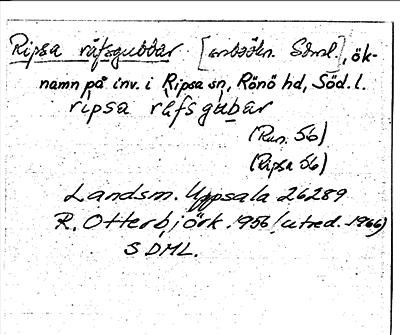 Ripsa räfsgubbar [ortsbefolkn. Sdml.], ök-
namn på inv. i Ripsa sn, Rönö hd, Söd. l.
ripsa räfsgubar
(Run. 56)
(Ripsa 56)
Landsm. Uppsala 26289
R. Otterbjörk. 1956 (utred. 1966)
SDML.